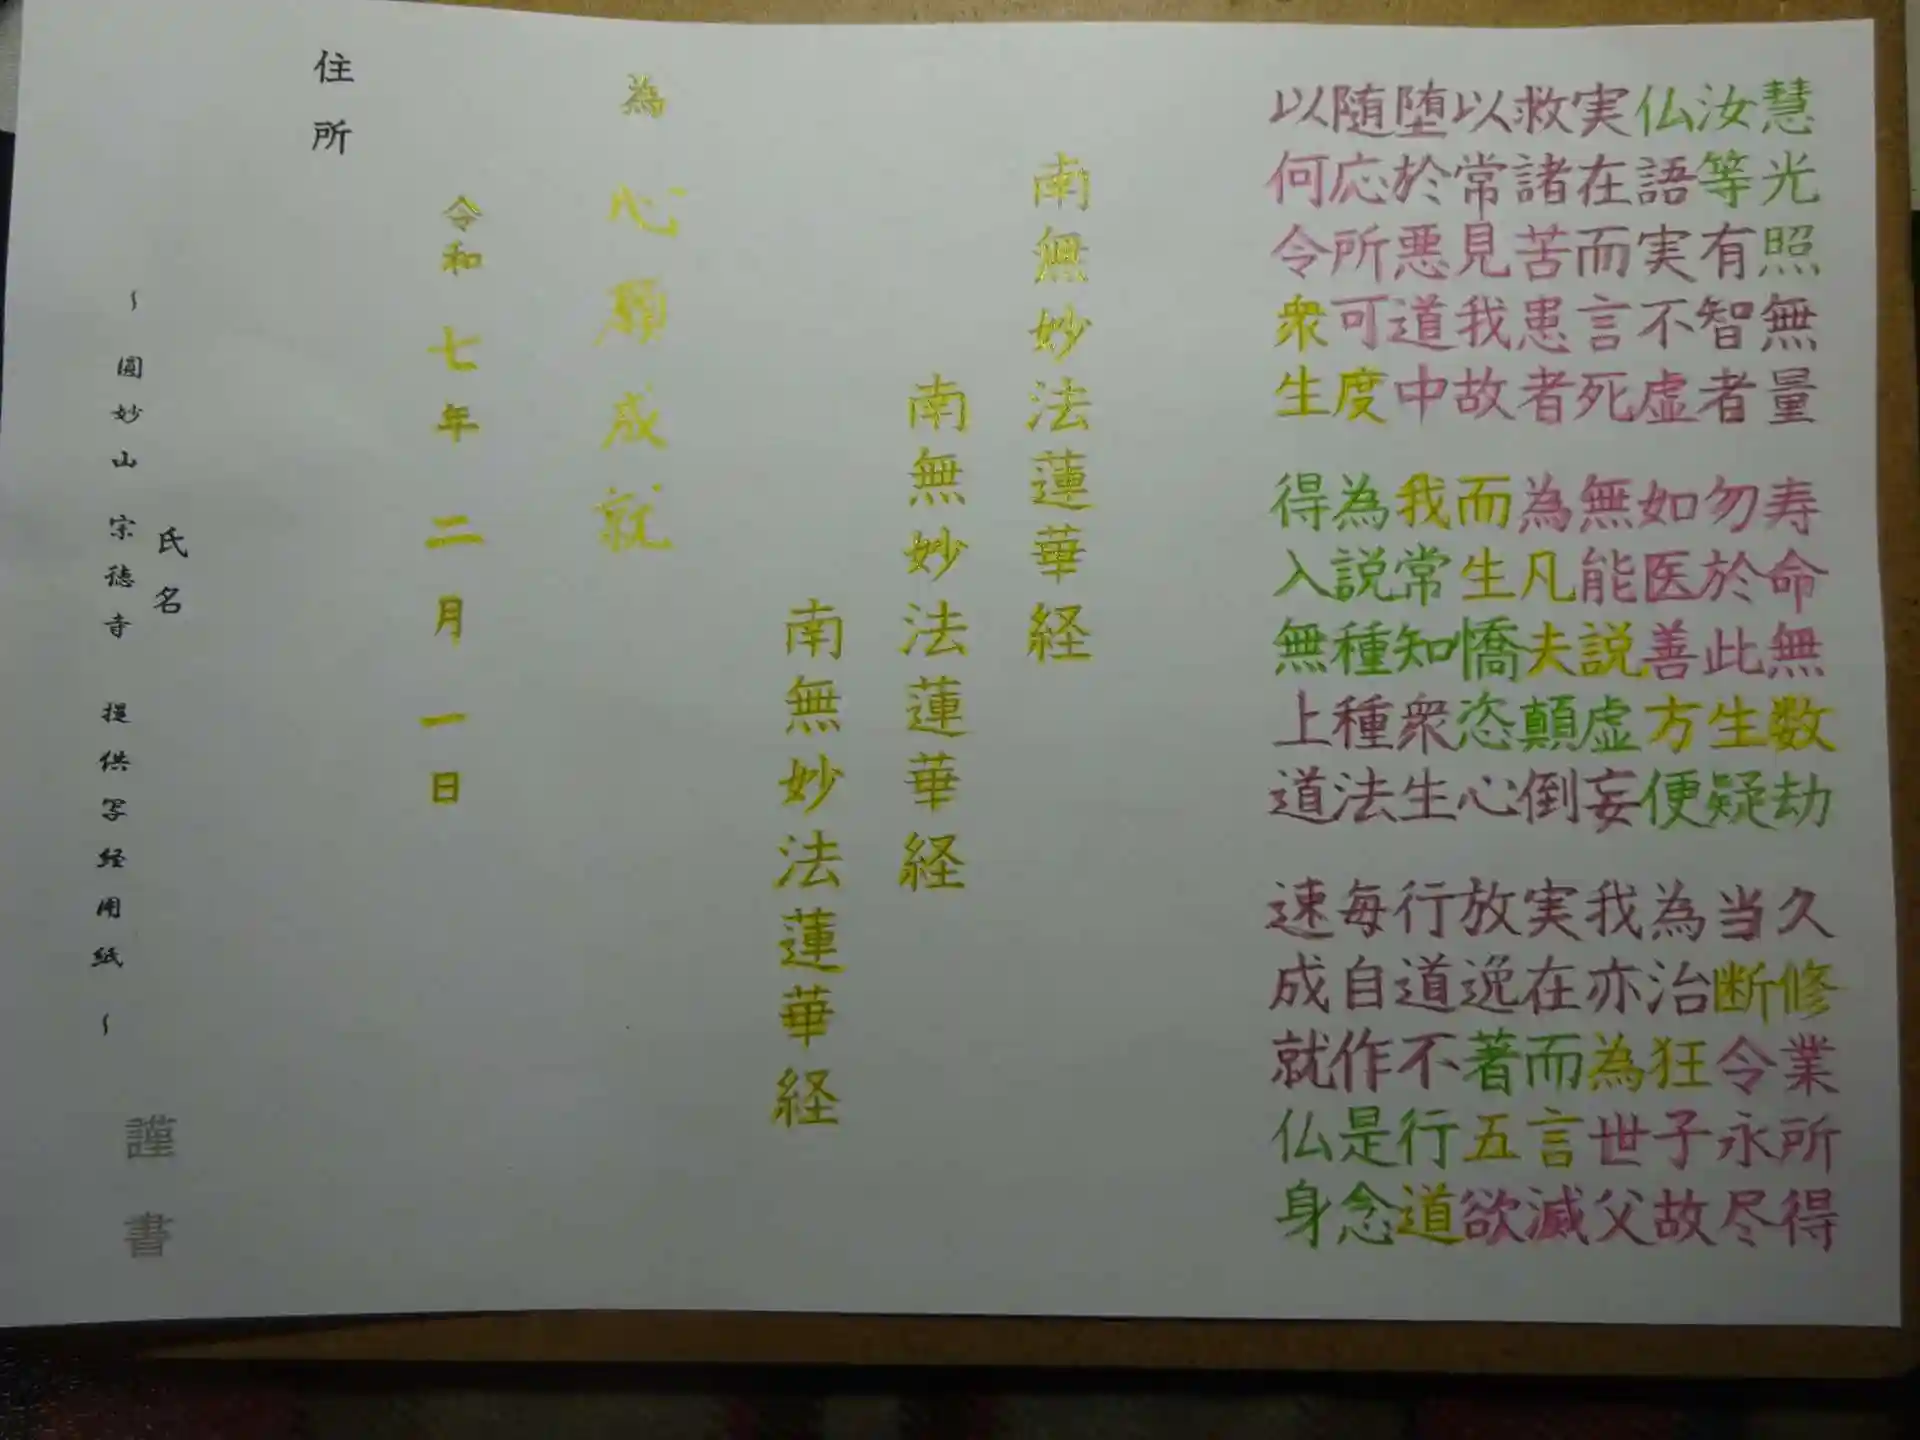 慧光照無量 寿命無数劫 久修業所得
汝等有智者 勿於此生疑 当断令永尽
仏語実不虚 如医善方便 為治狂子故
実在而言死 無能説虚妄 我亦為世父
救諸苦患者 為凡夫顛倒 実在而言滅
以常見我故 而生憍恣心 放逸著五欲
堕於悪道中 我常知衆生 行道不行道
随応所可度 為説種種法 毎自作是念
以何令衆生 得入無上道 速成就仏身
南無妙法蓮華経
南無妙法蓮華経
南無妙法蓮華経
為 心願成就
令和 七年 二月 一日
住所
氏名 謹書
~ 圓妙山 宗徳寺 提供写経用紙 ~